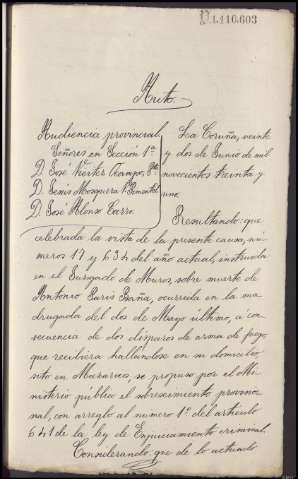 D.1.110.603
Auto.
Audiencia provincial
Señores en Sección 1ª
D. José
D. Jesús Mosquera
D. José Alonso
La Coruña, veinte
y dos de Junio de mil
novecientos treinta y
uno.
Resultando: que
celebrada la vista de la presente causa, nú-
meros 17 y 634 del año actual, instruida
en el Juzgado de Muros, sobre muerte de
Antonio París, ocurrida en la ma-
drugada del dos de Mayo último, a con-
secuencia de dos disparos de arma de fuego
que recibiera hallándose en su domicilio,
sito en Mazaricos, se propuso por el Mi-
nisterio público el sobreseimiento provisio-
nal, con arreglo al número 1º del artículo
641 de la ley de Enjuiciamiento criminal.
Considerando que de lo actuado